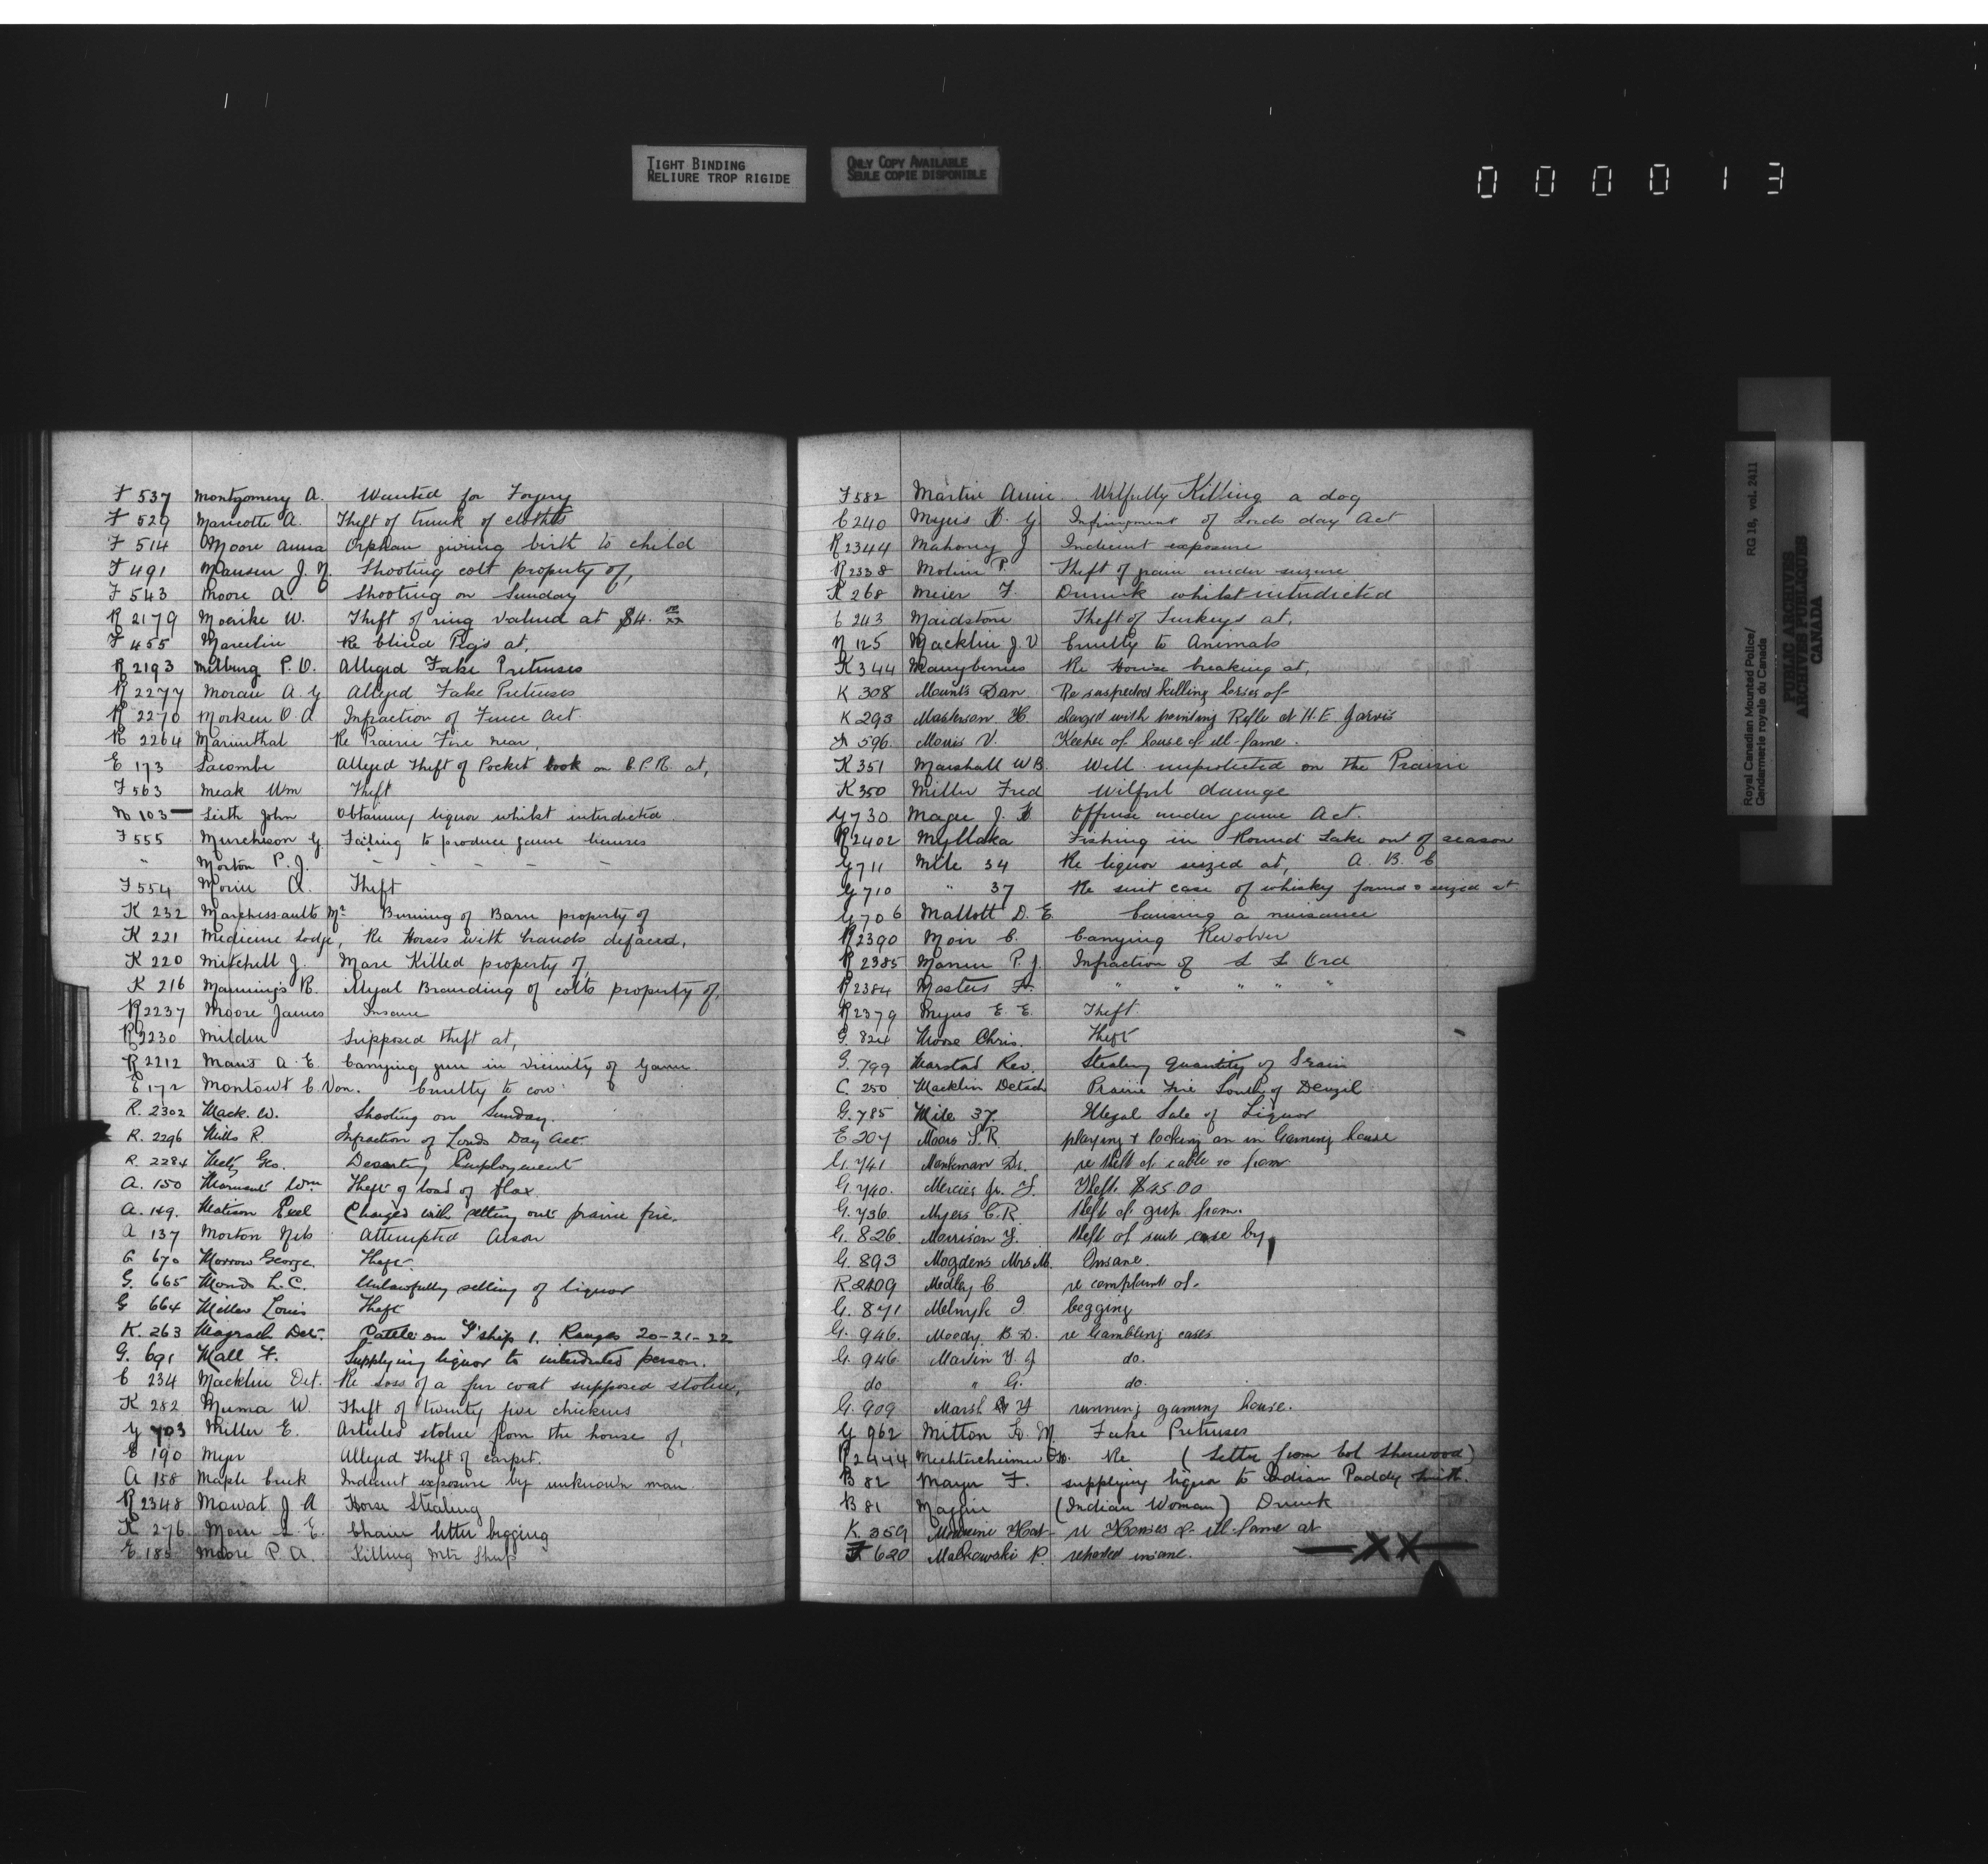 TIGHT BINDING
RELIURE TROP RIGIDE
ONLY COPY AVAILABLE
SEULE COPIE DISPONIBLE
000013
F 537 Montgomery A. Wanted for Forgery
F 529 Maricotte A. Theft of trunk of clothes
F 514 Moore Anna Orphan giving birth to child
F 491 Mansen J. N. Shooting colt property of,
F 543 Moore A. Shooting on Sunday
R 2179 Moerike W. Theft of ring valued at $4.
F 455 Marcelin Re blind Pigs at,
R 2193 Milburg P. O. Alleged False Pretenses
R 2277 Moran A. G Alleged False Pretenses
R 2270 Morken O A Infraction of Fence Act.
R 2264 Marienthal Re Prairie Fire near,
E 173 Lacombe Alleged Theft of Pocket book on C.P.R. at,
F 563 Meak Wm Theft
N 103 Leith John Obtaining liquor whilst interdicted
F 555 Murcheson G Failing to produce game licenses
" Morton P. J. - - - - -
F 554 Morin A. Theft
K 232 Marchessault Mr Burning of Barn property of
K 221 Medicine Lodge, Re Horses with brands defaced,
K 220 Mitchell J. Mare Killed property of,
K 216 Manning's R. Illegal Branding of colts property of,
R 2237 Moore James Insane
R 2230 Milden Supposed theft at,
R 2212 Mans A. E. Carrying gun in vicinity of Game
E 172 Montowt C. Von. Cruelty to cow
R. 2302 Mack. W. Shooting on Sunday.
R. 2296 Mills R. Infraction of Lords Day Act.
R. 2284 Geo. Deserting Employement
A. 150 Wm Theft of load of flax.
A. 149. Matison Charged with setting out prairie fire.
A 137 Morton Attempted Arson
G 670 Morrow George. Theft.
G. 665 Mond L. C. Unlawfully selling of liquor
G 664 Miller Louis Theft
K. 263 Magrath Det. Cattle on T'ship 1. Ranges 20-21-22
G. 691 Mall F. Supplying liquor to interdicted person.
C 234 Macklin Det. Re Loss of a fur coat supposed stolen,
K 282 Muma W. Theft of twenty five chickens
G 703 Miller E. Articles stolen from the house of,
E 190 Myer Alleged Theft of carpet.
A 158 Maple Creek Indecent exposure by unknown man.
R 2348 Mowat J A Horse Stealing
K 276 L. E. Chain letter begging
E 185 Moore P. A. Killing Mtn Sheep
F 582 Martin Annie Wilfully Killing a dog
C 240 Myers G Infringment of Lords day Act
R 2344 Mahoney J Indecent exposure
R 2338 Molin P. Theft of grain under seizure
K 268 Meier F. Drunk whilst interdicted
C 243 Maidstone Theft of Turkeys at,
N 125 Macklin J. V Cruelty to Animals
K 344 Manyberries Re House breaking at,
K 308 Mounts Dan Re suspected killing horses of
K 293 Masterson H. charged with pointing Rifle at H. E. Jarvis
F 596. Morris V. Keeper of house of ill-fame.
K 351 Marshall W B. Well unprotected on the Prairie
K 350 Miller Fred Wilful damage
G 730 Magee J. Offense under game Act.
R 2402 Myllaka Fishing in Round Lake out of season
G 711 Mile 34 Re liquor seized at, A. B. C
G 710 " 37 Re suit case of whisky found & seized at
G 706 Mallott D. E. Causing a nuisance
R 2390 Moir C. Carrying Revolver
R 2385 P. J. Infraction of L L Ord
R 2384 Masters " " " " "
R 2379 Myers E. E. Theft.
G. 824 Moose Chris. Theft
G. 799 Marstad Rev. Stealing quantity of Grain
C. 250 Macklin Detach Prairie Fire South of Denzil
G. 785 Mile 37. Illegal Sale of Liquor
E 207 Moors S. R. playing & looking on in Gaming house
G. 741 Monkman Dr. re theft of cable from
G. 740. Mercier Jr. Theft. $45.00
G. 736. Myers C. R. theft of grip from.
G. 826. Morrison Y. theft of suit case by
G. 893 Mogdens Mrs M. Insane.
R. 2409 Medley C. re complaint of.
G. 871 Melnyk I. begging
G. 946. Moody B. D. re Gambling cases
G. 946. Marvin do.
do " G. do.
G. 909 Marsh Y running gaming house.
G 962 Mitton M. False Pretenses
R 2444 Mechtercheimer Re (Letter from Col Sherwood)
B 82 Mayer F. supplying liquor to Indian Paddy
B 81 Maggie (Indian Woman) Drunk
K. 359 Medicine Hat re Houses of ill-fame at
F 620 Malkowski P. reported insane. XX
Royal Canadian Mounted Police/ RG 18, vol. 2411
Gendarmerie royale du Canada
PUBLIC ARCHIVES
ARCHIVES PUBLIQUES
CANADA